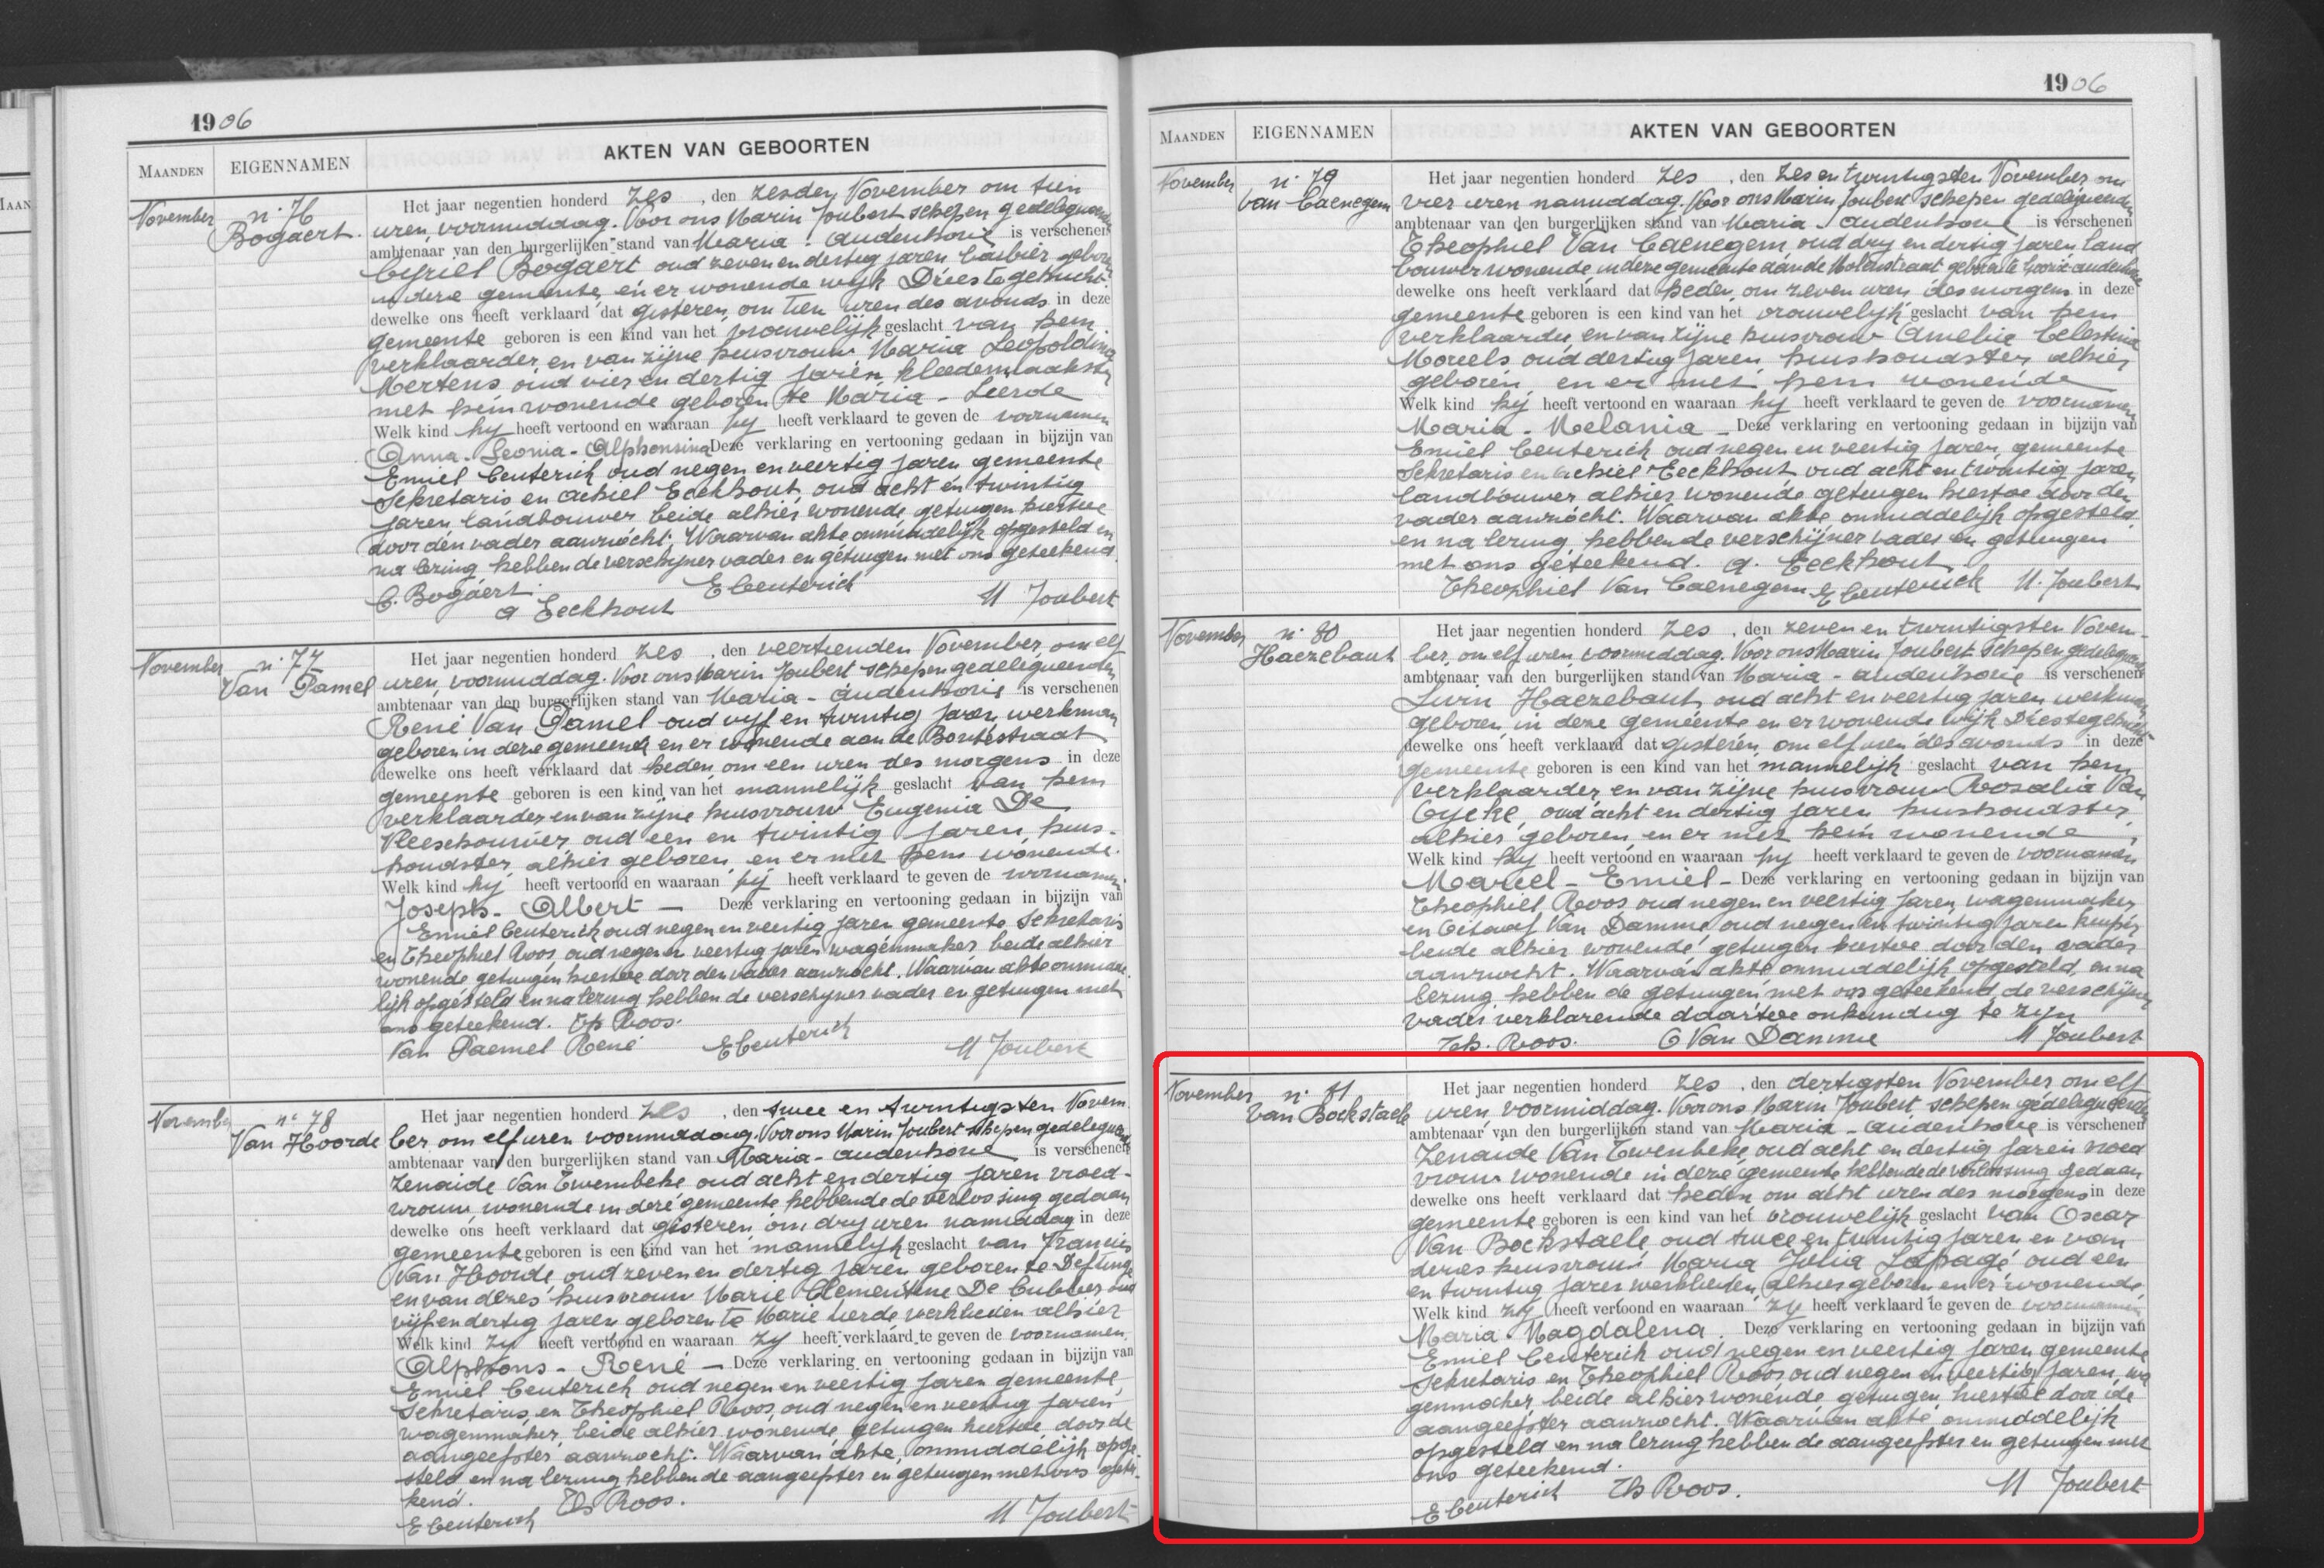 1906
AKTEN VAN GEBOORTEN
MAANDEN
EIGENNAMEN
November
n° 76
Bogaert
Het jaar negentien honderd zes, den zesden November om tien
uren, voormiddag. Voor ons Marin Joubert schepen gedelegueerden
ambtenaar van den burgerlijken stand van Maria-Audenhove is verschenen
Cyriel Bogaert oud zeven en dertig jaren barbier geboren
in deze gemeente, en er wonende wijk Driestegehucht
dewelke ons heeft verklaard dat gisteren, om tien uren des avonds in deze
gemeente geboren is een kind van het vrouwelijk geslacht van hem
verklaarder, en van zijne huisvrouw Maria Leopoldina
Mertens, oud vier en dertig jaren, kleedermaakster
met hem wonende geboren te Maria-Lierde
Welk kind hy heeft vertoond en waaraan hy heeft verklaard te geven de voornamen
Anna-Leonia-Alphonsina Deze verklaring en vertooning gedaan in bijzijn van
Emiel Ceuterick oud negen en veertig jaren gemeente
Sekretaris en Achiel Eeckhout, oud acht en twintig
jaren, landbouwer beide alhier wonende, getuigen hiertoe
door den vader aanzocht. Waarvan akte onmiddelijk opgesteld en
na lezing hebben de verschijner vader en getuigen met ons geteekend.
C. Bogaert
E Ceuterick
A Eeckhout
M Joubert
November
n° 77
Van Pamel
Het jaar negentien honderd zes, den veertienden November, om elf
uren, voormiddag. Voor ons Marin Joubert schepen gedelegueerden
ambtenaar van den burgerlijken stand van Maria-Audenhove is verschenen
René Van Pamel oud vijf en twintig jaren, werkman
geboren in deze gemeente en er wonende aan de Bontestraat
dewelke ons heeft verklaard dat heden, om een uren des morgens in deze
gemeente geboren is een kind van het mannelijk geslacht van hem
verklaarder en van zijne huisvrouw Eugenia De
Vleeschouwer, oud een en twintig jaren, huis-
houdster, alhier geboren, en er met hem wonende.
Welk kind hy heeft vertoond en waaraan hij heeft verklaard te geven de voornamen
Joseph-Albert — Deze verklaring en vertooning gedaan in bijzijn van
Emiel Ceuterick oud negen en veertig jaren gemeente Sekretaris
en Theophiel Roos oud negen en veertig jaren wagenmaker beide alhier
wonende, getuigen hiertoe door den vader aanzocht. Waarvan akte onmidde-
lijk opgesteld en na lezing hebben de verschijner vader en getuigen met
ons geteekend. Th Roos.
Van Paemel René
E Ceuterick
M Joubert
November
n° 78
Van Hoorde
Het jaar negentien honderd zes, den twee en twintigsten Novem-
ber om elf uren voormiddag. Voor ons Marin Joubert schepen gedelegueerden
ambtenaar van den burgerlijken stand van Maria-Audenhove is verschenen
Zenaïde Van Twembeke oud acht en dertig jaren vroed-
vrouw, wonende in deze gemeente hebbende de verlossing gedaan
dewelke ons heeft verklaard dat gisteren, om dry uren namiddag in deze
gemeente geboren is een kind van het mannelijk geslacht van Francies
Van Hoorde, oud zeven en dertig jaren geboren te Deftinge
en van dezes huisvrouw Marie Clementine De Cubber oud
vijf en dertig jaren geboren te Marie Lierde werklieden alhier
Welk kind zy heeft vertoond en waaraan zy heeft verklaard te geven de voornamen
Alphons-René — Deze verklaring en vertooning gedaan in bijzijn van
Emiel Ceuterick oud negen en veertig jaren gemeente
Sekretaris, en Theophiel Roos, oud negen en veertig jaren
wagenmaker, beide alhier wonende, getuigen hiertoe, door de
aangeefster aanzocht. Waarvan akte, onmiddelijk opge-
steld en na lezing hebben de aangeefster en getuigen met ons getee-
kend.
Th Roos.
E Ceuterick
M Joubert
1906
AKTEN VAN GEBOORTEN
MAANDEN
EIGENNAMEN
November
n° 79
Van Caenegem
Het jaar negentien honderd zes, den zes en twintigsten November om
vier uren namiddag. Voor ons Marin Joubert schepen gedelegueerden
ambtenaar van den burgerlijken stand van Maria-Audenhove is verschenen
Theophiel Van Caenegem, oud dry en dertig jaren land
bouwer wonende in deze gemeente aan de Molenstraat geboren te Goorix-audenhove
dewelke ons heeft verklaard dat heden, om zeven uren des morgens in deze
gemeente geboren is een kind van het vrouwelijk geslacht van hem
verklaarder, en van zijne huisvrouw Amelie Celestina
Moreels, oud dertig jaren, huishoudster, alhier
geboren, en er met hem wonende
Welk kind hij heeft vertoond en waaraan hy heeft verklaard te geven de voornamen
Maria-Melania — Deze verklaring en vertooning gedaan in bijzijn van
Emiel Ceuterick oud negen en veertig jaren, gemeente
Sekretaris en Achiel Eeckhout oud acht en twintig jaren
landbouwer alhier wonende getuigen hiertoe door den
vader aanzocht. Waarvan akte, onmiddelijk opgesteld
en na lezing, hebben de verschijner vader en getuigen
met ons geteekend. A. Eeckhout
Theophiel Van Caenegem
E Ceuterick
M. Joubert
November
n° 80
Haezebaut
Het jaar negentien honderd zes, den zeven en twintigsten Novem-
ber, om elf uren, voormiddag. Voor ons Marin Joubert Schepen gedelegueerden
ambtenaar van den burgerlijken stand van Maria-Audenhove is verschenen
Livin Haezebaut, oud acht en veertig jaren, werkman
geboren, in deze gemeente en er wonende wijk Driestegehucht
dewelke ons heeft verklaard dat gisteren, om elf uren des avonds in deze
gemeente geboren is een kind van het mannelijk geslacht van hem
verklaarder, en van zijne huisvrouw Rosalia Van
Cycke, oud acht en dertig jaren huishoudster,
alhier, geboren, en er met hem wonende
Welk kind hy heeft vertoond en waaraan hy heeft verklaard te geven de voornamen
Marcel-Emiel — Deze verklaring en vertooning gedaan in bijzijn van
Theophiel Roos oud negen en veertig jaren, wagenmaker
en Octaaf Van Damme oud negen en twintig jaren kuiper
beide alhier wonende getuigen hiertoe door den vader
aanzocht. Waarvan akte onmiddelijk opgesteld, en na
lezing, hebben de getuigen met ons geteekend, de verschijner
vader verklarende daartoe onkundig te zijn
Th. Roos.
O Van Damme
M Joubert
November
n° 81
Van Bockstaele
Het jaar negentien honderd zes, den dertigsten November om elf
uren, voormiddag. Voor ons Marin Joubert, schepen gedelegueerden
ambtenaar van den burgerlijken stand van Maria-Audenhove is verschenen
Zenaïde Van Twembeke, oud acht en dertig jaren vroed
vrouw wonende in deze gemeente hebbende de verlossing gedaan
dewelke ons heeft verklaard dat heden om acht uren des morgens in deze
gemeente geboren is een kind van het vrouwelijk geslacht van Oscar
Van Bockstaele oud twee en twintig jaren en van
dezes huisvrouw Maria Julia Lapage oud een
en twintig jaren werklieden, alhier geboren en er wonende,
Welk kind zy heeft vertoond en waaraan zy heeft verklaard te geven de voornamen
Maria Magdalena. Deze verklaring en vertooning gedaan in bijzijn van
Emiel Ceuterick oud negen en veertig jaren, gemeente
Sekretaris en Theophiel Roos oud negen en veertig jaren, wa
genmaker, beide alhier wonende, getuigen, hiertoe door de
aangeefster aanzocht. Waarvan akte, onmiddelijk
opgesteld en na lezing hebben de aangeefster en getuigen met
ons geteekend.
E Ceuterick
Th Roos.
M Joubert